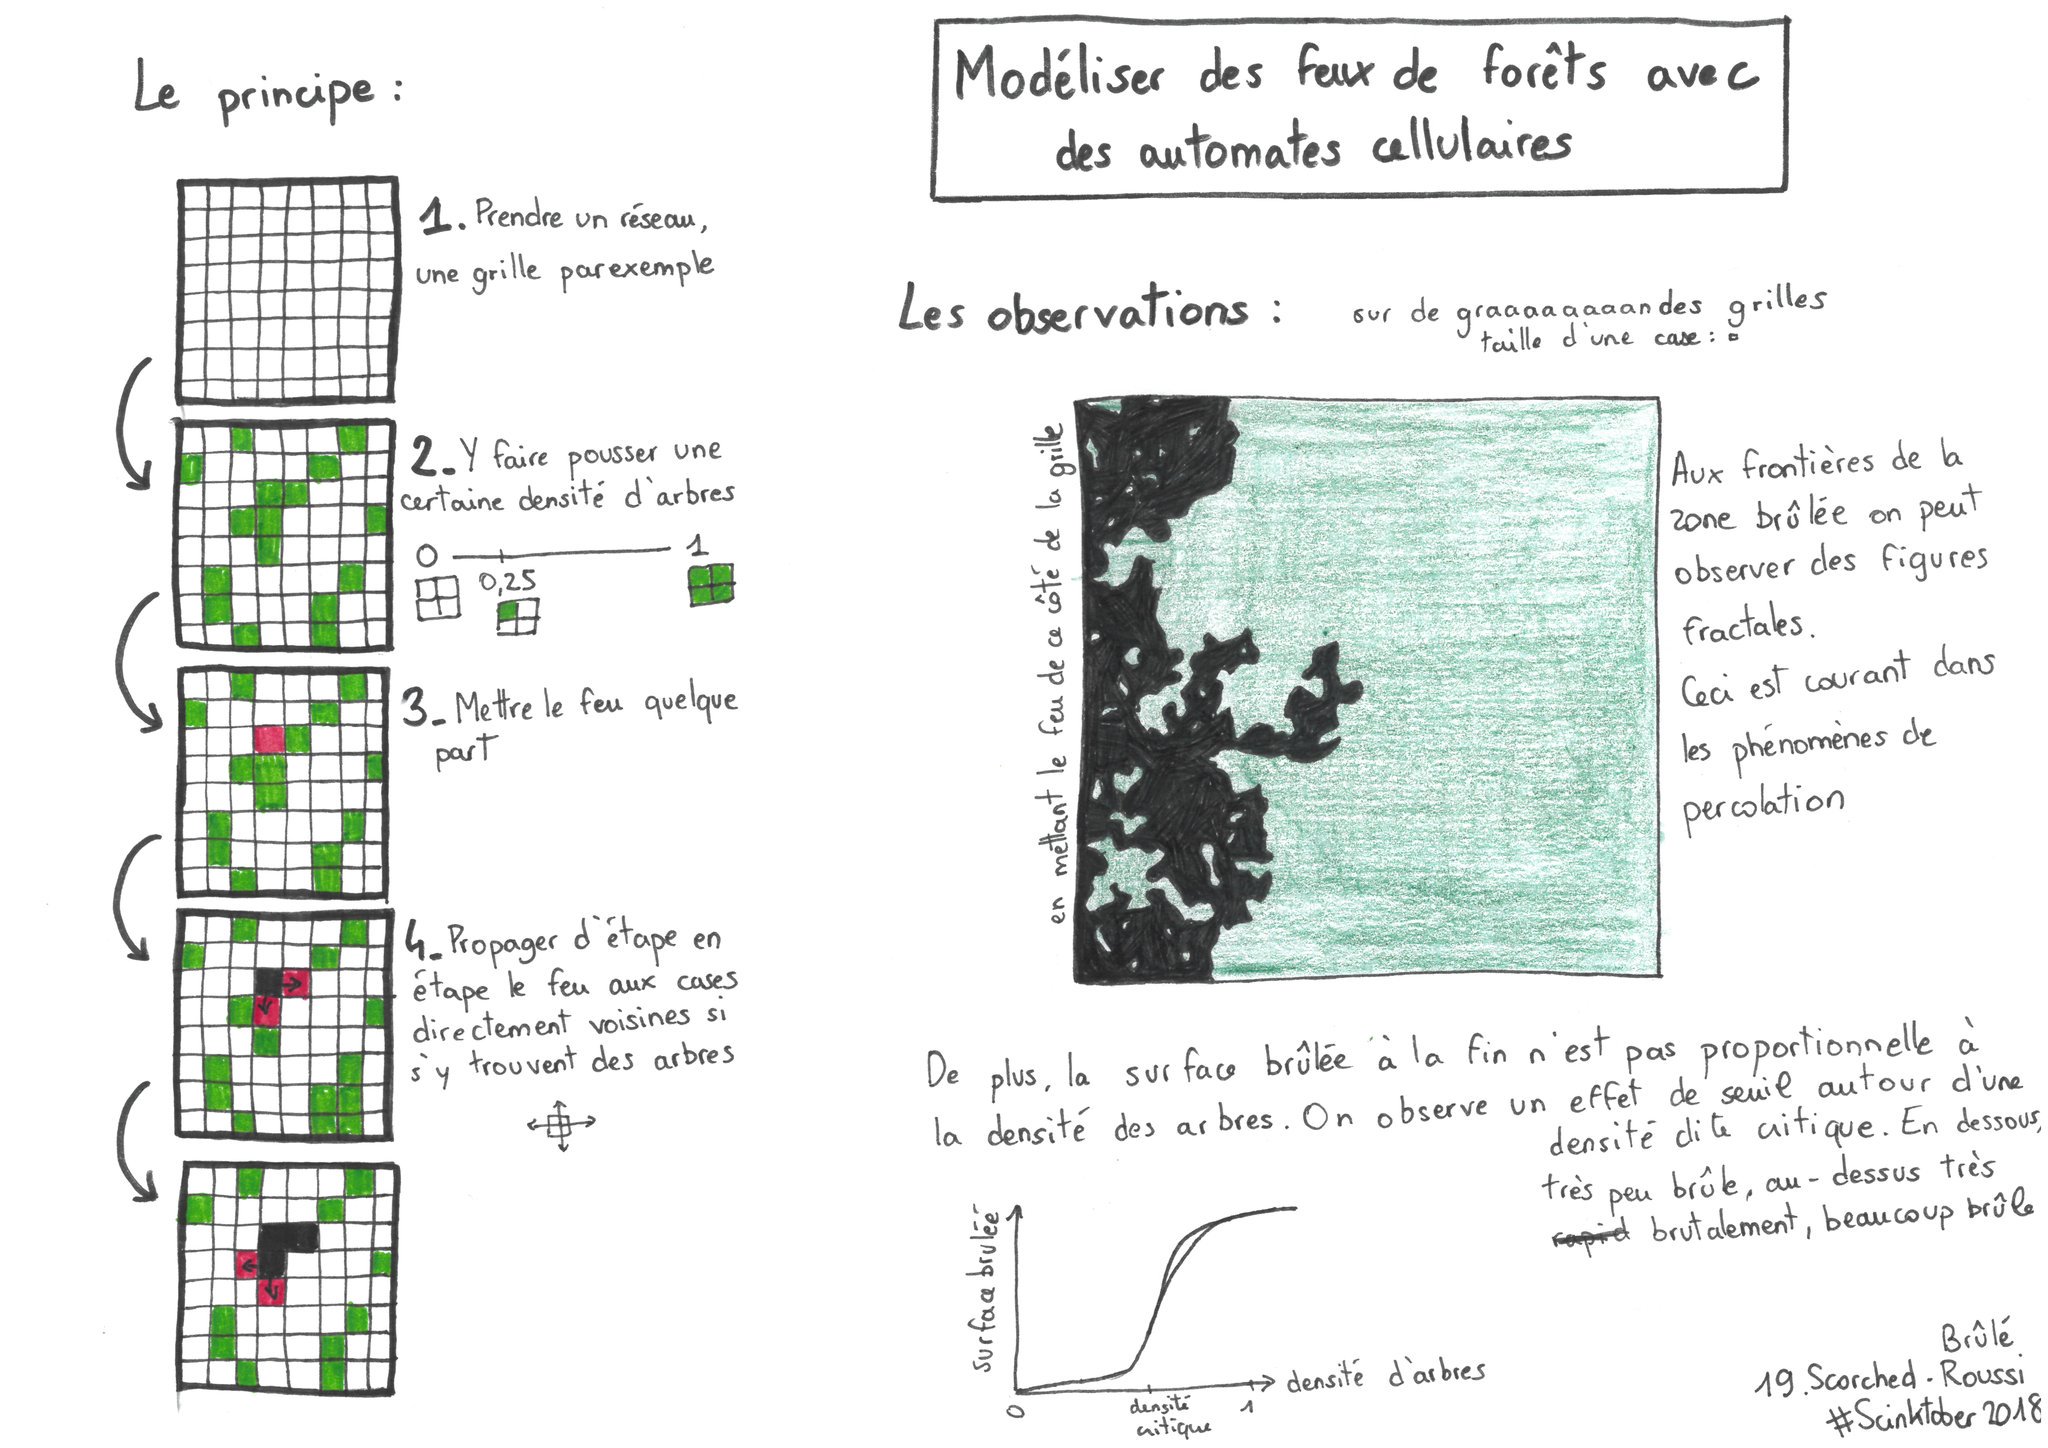 Le principe :
1. Prendre un réseau,
une grille par exemple
2_ Y faire pousser une
certaine densité d'arbres
0
1
0,25
3_ Mettre le feu quelque
part
4_ Propager d'étape en
étape le feu aux cases
directement voisines si
s'y trouvent des arbres
Modéliser des feux de forêts avec
des automates cellulaires
Les observations :
sur de graaaaaaaaandes grilles
taille d'une case :
en mettant le feu de ce côté de la grille
Aux frontières de la
zone brûlée on peut
observer des figures
fractales.
Ceci est courant dans
les phénomènes de
percolation
De plus, la surface brûlée à la fin n'est pas proportionnelle à
la densité des arbres. On observe un effet de seuil autour d'une
densité dite critique. En dessous,
très peu brûle, au-dessus très
rapid brutalement, beaucoup brûle
surface brulée
1
0
densité
critique
1
densité d'arbres
Brûlé
19. Scorched - Roussi
#Scinktober 2018